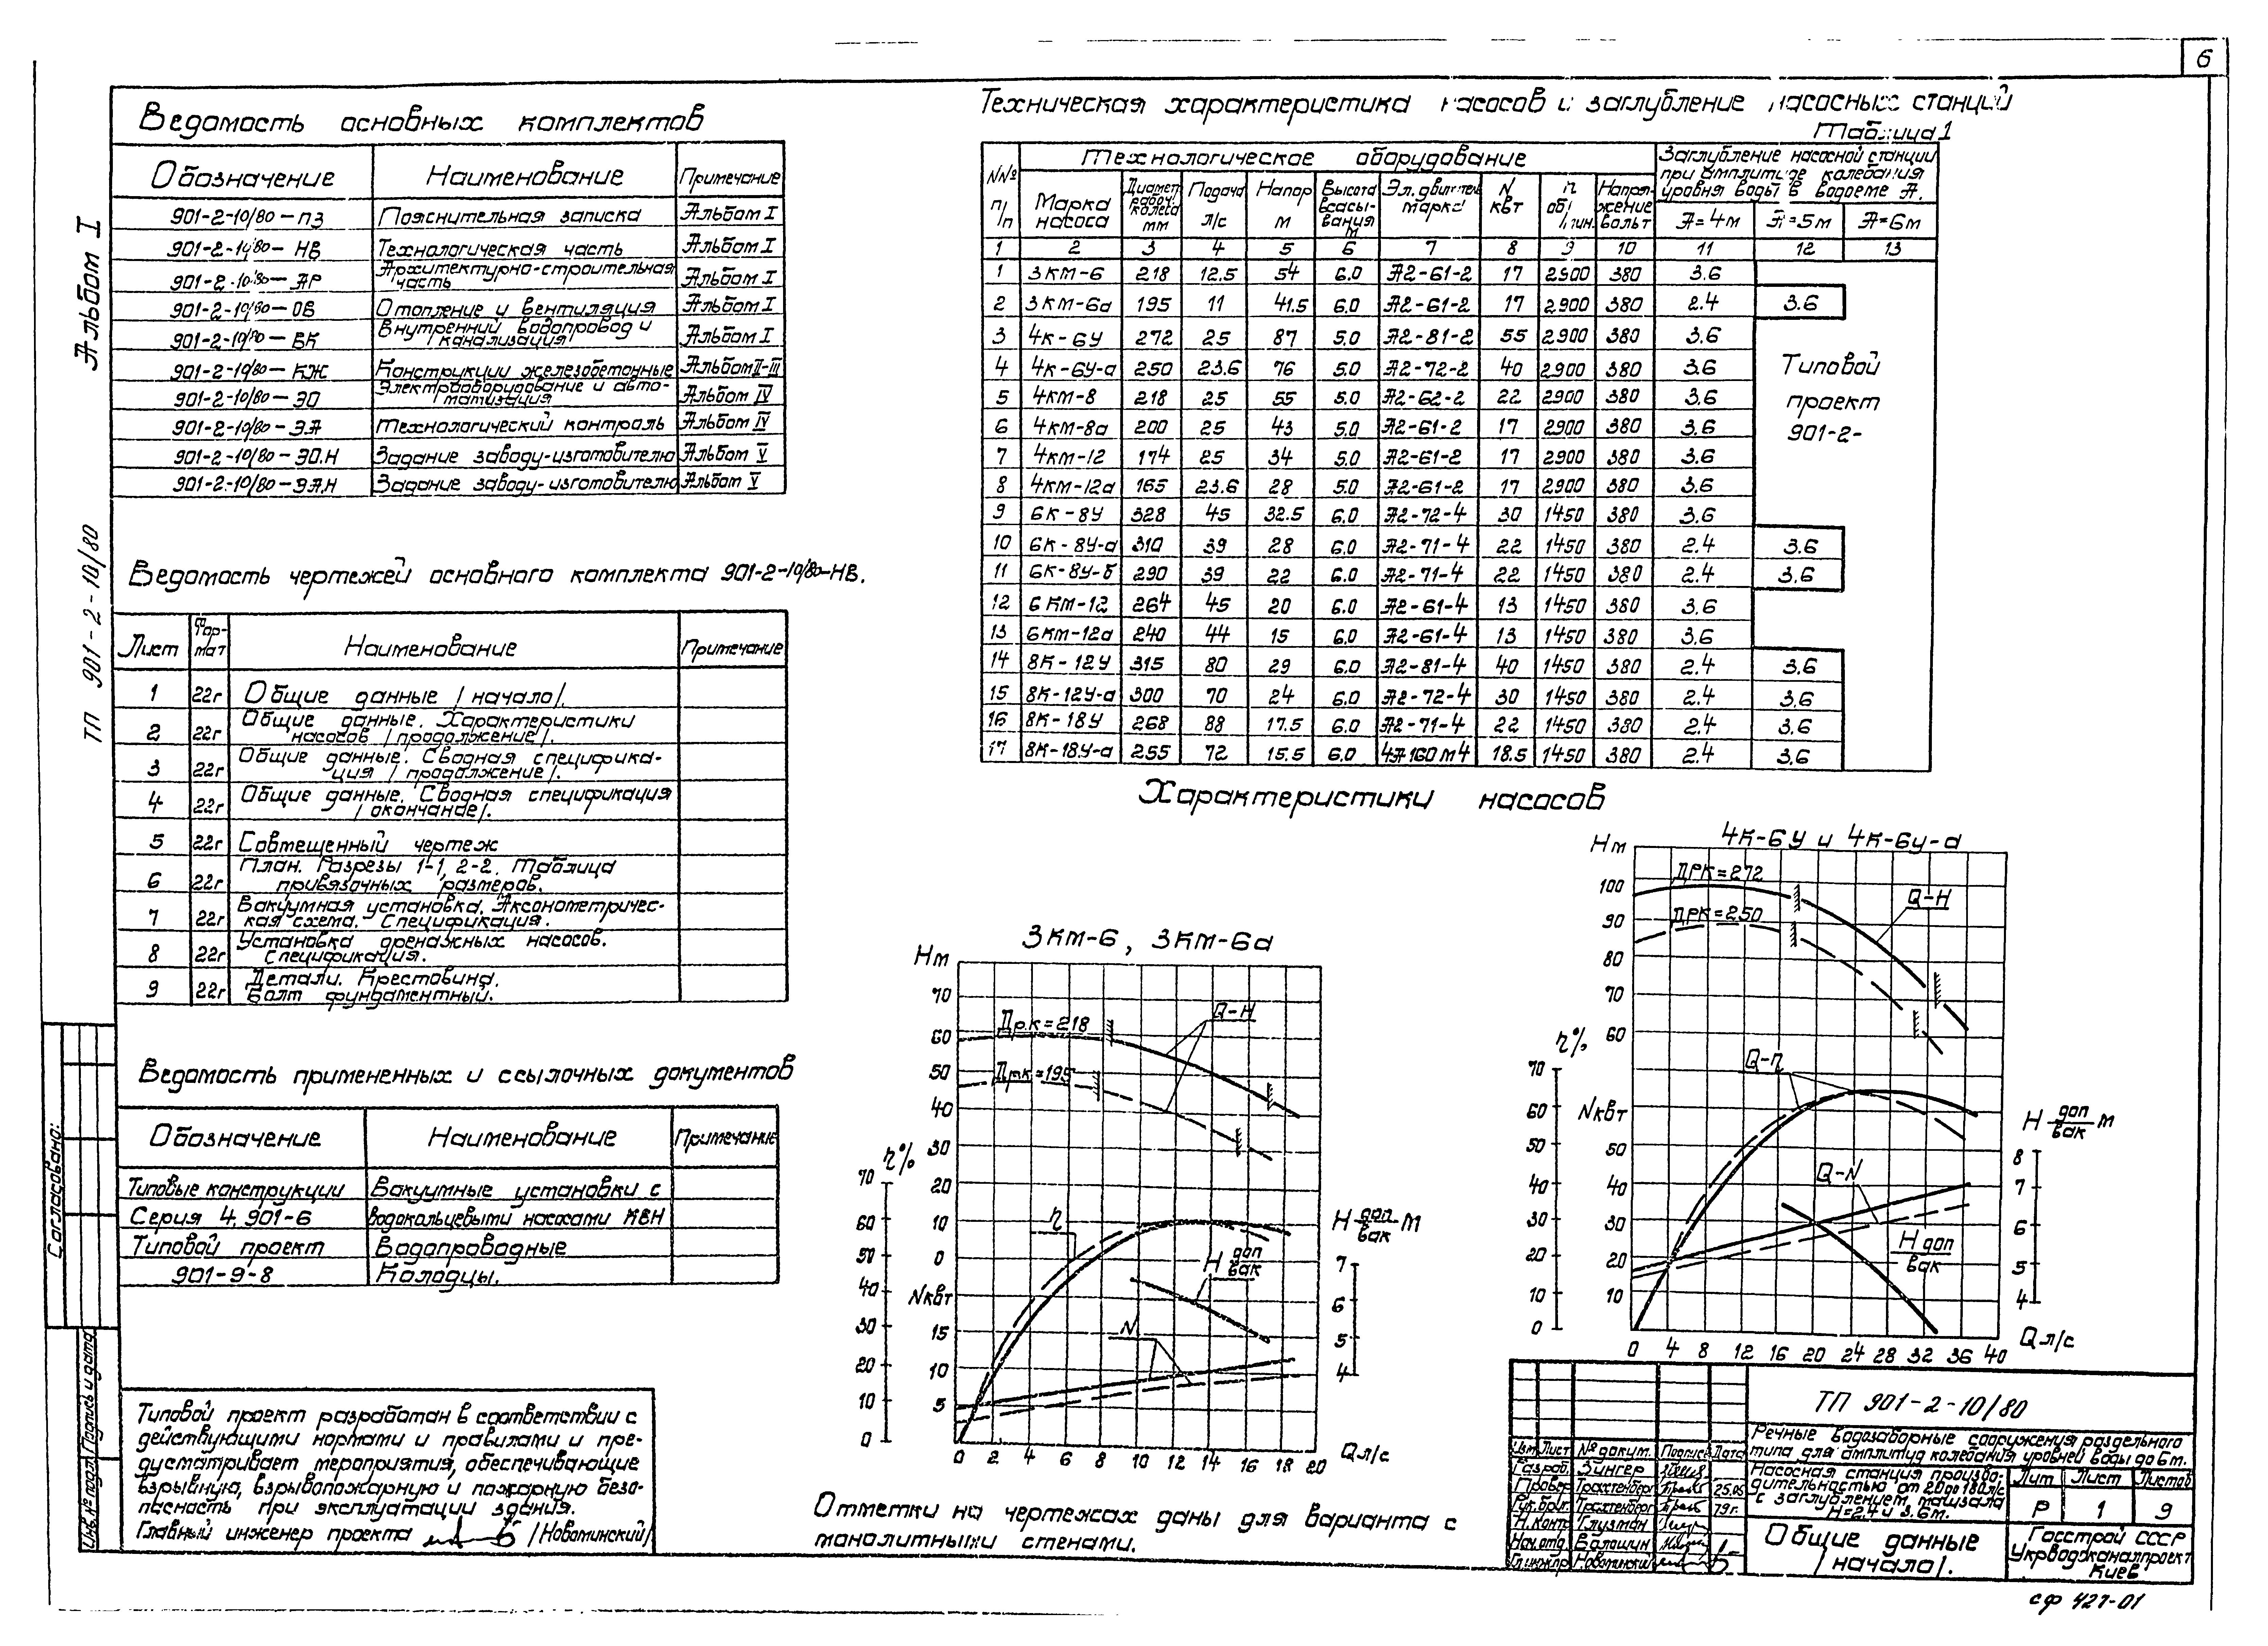 6
Альбом I
ТП 901-2-10/80
Ведомость основных комплектов
Обозначение Наименование Примечание
901-2-10/80-ПЗ Пояснительная записка Альбом I
901-2-10/80-НВ Технологическая часть Альбом I
901-2-10/80-АР Архитектурно-строительная часть Альбом I
901-2-10/80-ОВ Отопление и вентиляция Альбом I
901-2-10/80-ВК Внутренний водопровод и канализация Альбом I
901-2-10/80-КЖ Конструкции железобетонные Альбом II-III
901-2-10/80-ЭО Электрооборудование и автоматизация Альбом IV
901-2-10/80-ЭА Технологический контроль Альбом IV
901-2-10/80-ЭО.Н Задание заводу-изготовителю Альбом V
901-2-10/80-ЭА.Н Задание заводу-изготовителю Альбом V
Ведомость чертежей основного комплекта 901-2-10/80-НВ.
Лист Формат Наименование Примечание
1 22г Общие данные /начало/.
2 22г Общие данные. Характеристики насосов /продолжение/.
3 22г Общие данные. Сводная спецификация /продолжение/.
4 22г Общие данные. Сводная спецификация /окончание/.
5 22г Совмещенный чертеж
6 22г План. Разрезы 1-1, 2-2. Таблица привязочных размеров.
7 22г Вакуумная установка. Аксонометрическая схема. Спецификация.
8 22г Установка дренажных насосов. Спецификация.
9 22г Детали. Крестовина. Болт фундаментный.
Ведомость примененных и ссылочных документов
Обозначение Наименование Примечание
Типовые конструкции Вакуумные установки с
Серия 4.901-6 водокольцевыми насосами КВН
Типовой проект Водопроводные
901-9-8 Колодцы.
Типовой проект разработан в соответствии с
действующими нормами и правилами и пре-
дусматривает мероприятия, обеспечивающие
взрывную, взрывопожарную и пожарную безо-
пасность при эксплуатации здания.
Главный инженер проекта /Новоминский/
Согласовано:
Инв. № подл. Подпись и дата
Техническая характеристика насосов и заглубление насосных станций
Таблица 1
№№ п/п Технологическое оборудование Заглубление насосной станции при амплитуде колебания уровня воды в водоеме А.
Марка насоса Диаметр рабоч. колеса мм Подача л/с Напор м Высота всасывания м Эл. двигатель марка N квт n об/мин. Напряжение вольт А=4м А=5м А=6м
1 2 3 4 5 6 7 8 9 10 11 12 13
1 3КМ-6 218 12.5 54 6.0 А2-61-2 17 2900 380 3.6
2 3КМ-6а 195 11 41.5 6.0 А2-61-2 17 2900 380 2.4 3.6
3 4К-6У 272 25 87 5.0 А2-81-2 55 2900 380 3.6
4 4К-6У-а 250 23.6 76 5.0 А2-72-2 40 2900 380 3.6
5 4КМ-8 218 25 55 5.0 А2-62-2 22 2900 380 3.6
6 4КМ-8а 200 25 43 5.0 А2-61-2 17 2900 380 3.6
7 4КМ-12 174 25 34 5.0 А2-61-2 17 2900 380 3.6
8 4КМ-12а 165 23.6 28 5.0 А2-61-2 17 2900 380 3.6
9 6К-8У 328 45 32.5 6.0 А2-72-4 30 1450 380 3.6
10 6К-8У-а 310 39 28 6.0 А2-71-4 22 1450 380 2.4 3.6
11 6К-8У-б 290 39 22 6.0 А2-71-4 22 1450 380 2.4 3.6
12 6КМ-12 264 45 20 6.0 А2-61-4 13 1450 380 3.6
13 6КМ-12а 240 44 15 6.0 А2-61-4 13 1450 380 3.6
14 8К-12У 315 80 29 6.0 А2-81-4 40 1450 380 2.4 3.6
15 8К-12У-а 300 70 24 6.0 А2-72-4 30 1450 380 2.4 3.6
16 8К-18У 268 88 17.5 6.0 А2-71-4 22 1450 380 2.4 3.6
17 8К-18У-а 255 72 15.5 6.0 4А160М4 18.5 1450 380 2.4 3.6
Типовой
проект
901-2-
Характеристики насосов
3КМ-6, 3КМ-6а
Нм
70
60
50
40
30
20
10
0
Nквт
15
10
5
η%
70
60
50
40
30
20
10
0
Др.к=218
Дрк=195
Q-H
η
H доп/вак
N
H доп/вак м
7
6
5
4
0 2 4 6 8 10 12 14 16 18 20 Qл/с
4К-6У и 4К-6У-а
Нм
100
90
80
70
60
Nквт
50
40
30
20
10
η%
70
60
50
40
30
20
10
0
ДРК=272
ДРК=250
Q-H
Q-η
Q-N
H доп/вак
H доп/вак м
8
7
6
5
4
0 4 8 12 16 20 24 28 32 36 40 Qл/с
Отметки на чертежах даны для варианта с
монолитными стенами.
ТП 901-2-10/80
Речные водозаборные сооружения раздельного
типа для амплитуд колебания уровней воды до 6м.
Изм Лист № докум. Подпись Дата
Разраб. Зингер
Провер. Трахтенберг 25.05
Рук. бриг. Трахтенберг 79г.
Н. контр. Глузман
Нач. отд. Балошин
Гл. инж. пр. Новоминский
Насосная станция произво-
дительностью от 20 до 180 л/с
с заглублением машзала
Н=2.4 и 3.6м.
Лит Лист Листов
Р 1 9
Общие данные
/начало/.
Госстрой СССР
Укрводоканалпроект
Киев
сф 427-01